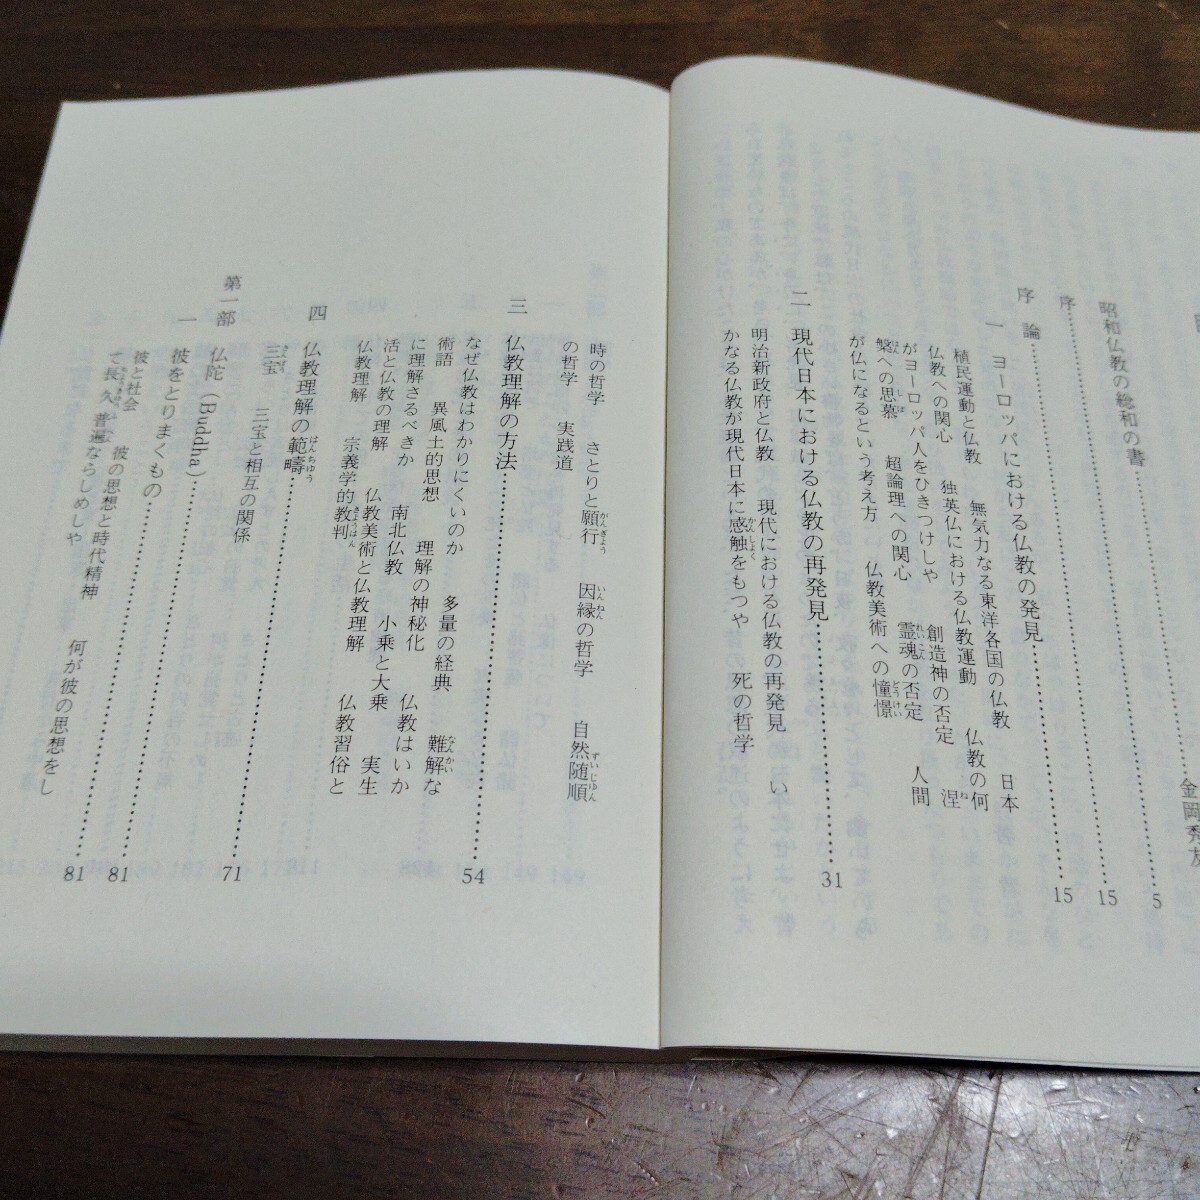 昭和仏教の総和の書……金岡秀友 5
序……15
序論……15
一 ヨーロッパにおける仏教の発見……
植民運動と仏教 無気力なる東洋各国の仏教 日本
仏教への関心 独英仏における仏教運動 仏教の何
がヨーロッパ人をひきつけしや 創造神の否定 涅
槃への思慕 超論理への関心 霊魂の否定 人間
が仏になるという考え方 仏教美術への憧憬
二 現代日本における仏教の再発見……31
明治新政府と仏教 現代における仏教の再発見 い
かなる仏教が現代日本に感触をもつや 死の哲学
時の哲学 さとりと願行 因縁の哲学 自然随順
の哲学 実践道
三 仏教理解の方法……54
なぜ仏教はわかりにくいのか 多量の経典 難解な
術語 異風土的思想 理解の神秘化 仏教はいか
に理解さるべきか 南北仏教 小乗と大乗 実生
活と仏教の理解 仏教美術と仏教理解 仏教習俗と
仏教理解 宗義学的教判
四 仏教理解の範疇……71
三宝 三宝と相互の関係
第一部 仏陀（Buddha）……81
一 彼をとりまくもの……81
彼と社会 彼の思想と時代精神 何が彼の思想をし
て長久 普遍ならしめしや